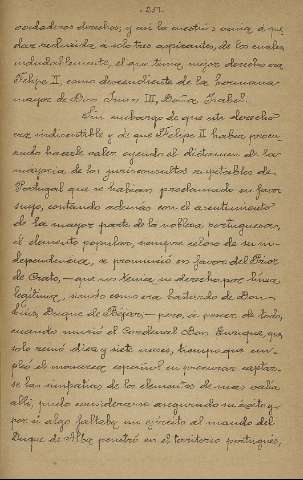 - 251 -
verdaderos derechos; y así la cuestión venía a que
dar reducida a solo tres aspirantes, de los cuales
indudablemente, el que tenía mejor derecho era
Felipe II, como descendiente de la hermana
mayor de Don Juan III, Doña Isabel.
Sin embargo de que este derecho
era indiscutible y de que Felipe II había procu
rado hacerle valer oyendo el dictamen de la
mayoría de los jurisconsultos respetables de
Portugal que se habían proclamado en favor
suyo, contando además con el asentimiento
de la mayor parte de la nobleza portuguesa,
el elemento popular, siempre celoso de su in-
dependencia, se pronunció en favor del Prior
de Crato, — que no tenía ni derecho por línea
legítima, siendo como era bastardo de Don
Luis, Duque de Béjar, — pero, a pesar de todo,
cuando murió el Cardenal Don Enrique, que
solo reinó diez y siete meses, tiempo que em-
pleó el monarca español en procurar captar-
se las simpatías de los elementos de más valía
allí, pudo considerarse asegurado su éxito y
por si algo faltaba un ejército al mando del
Duque de Alba penetró en el territorio portugués,